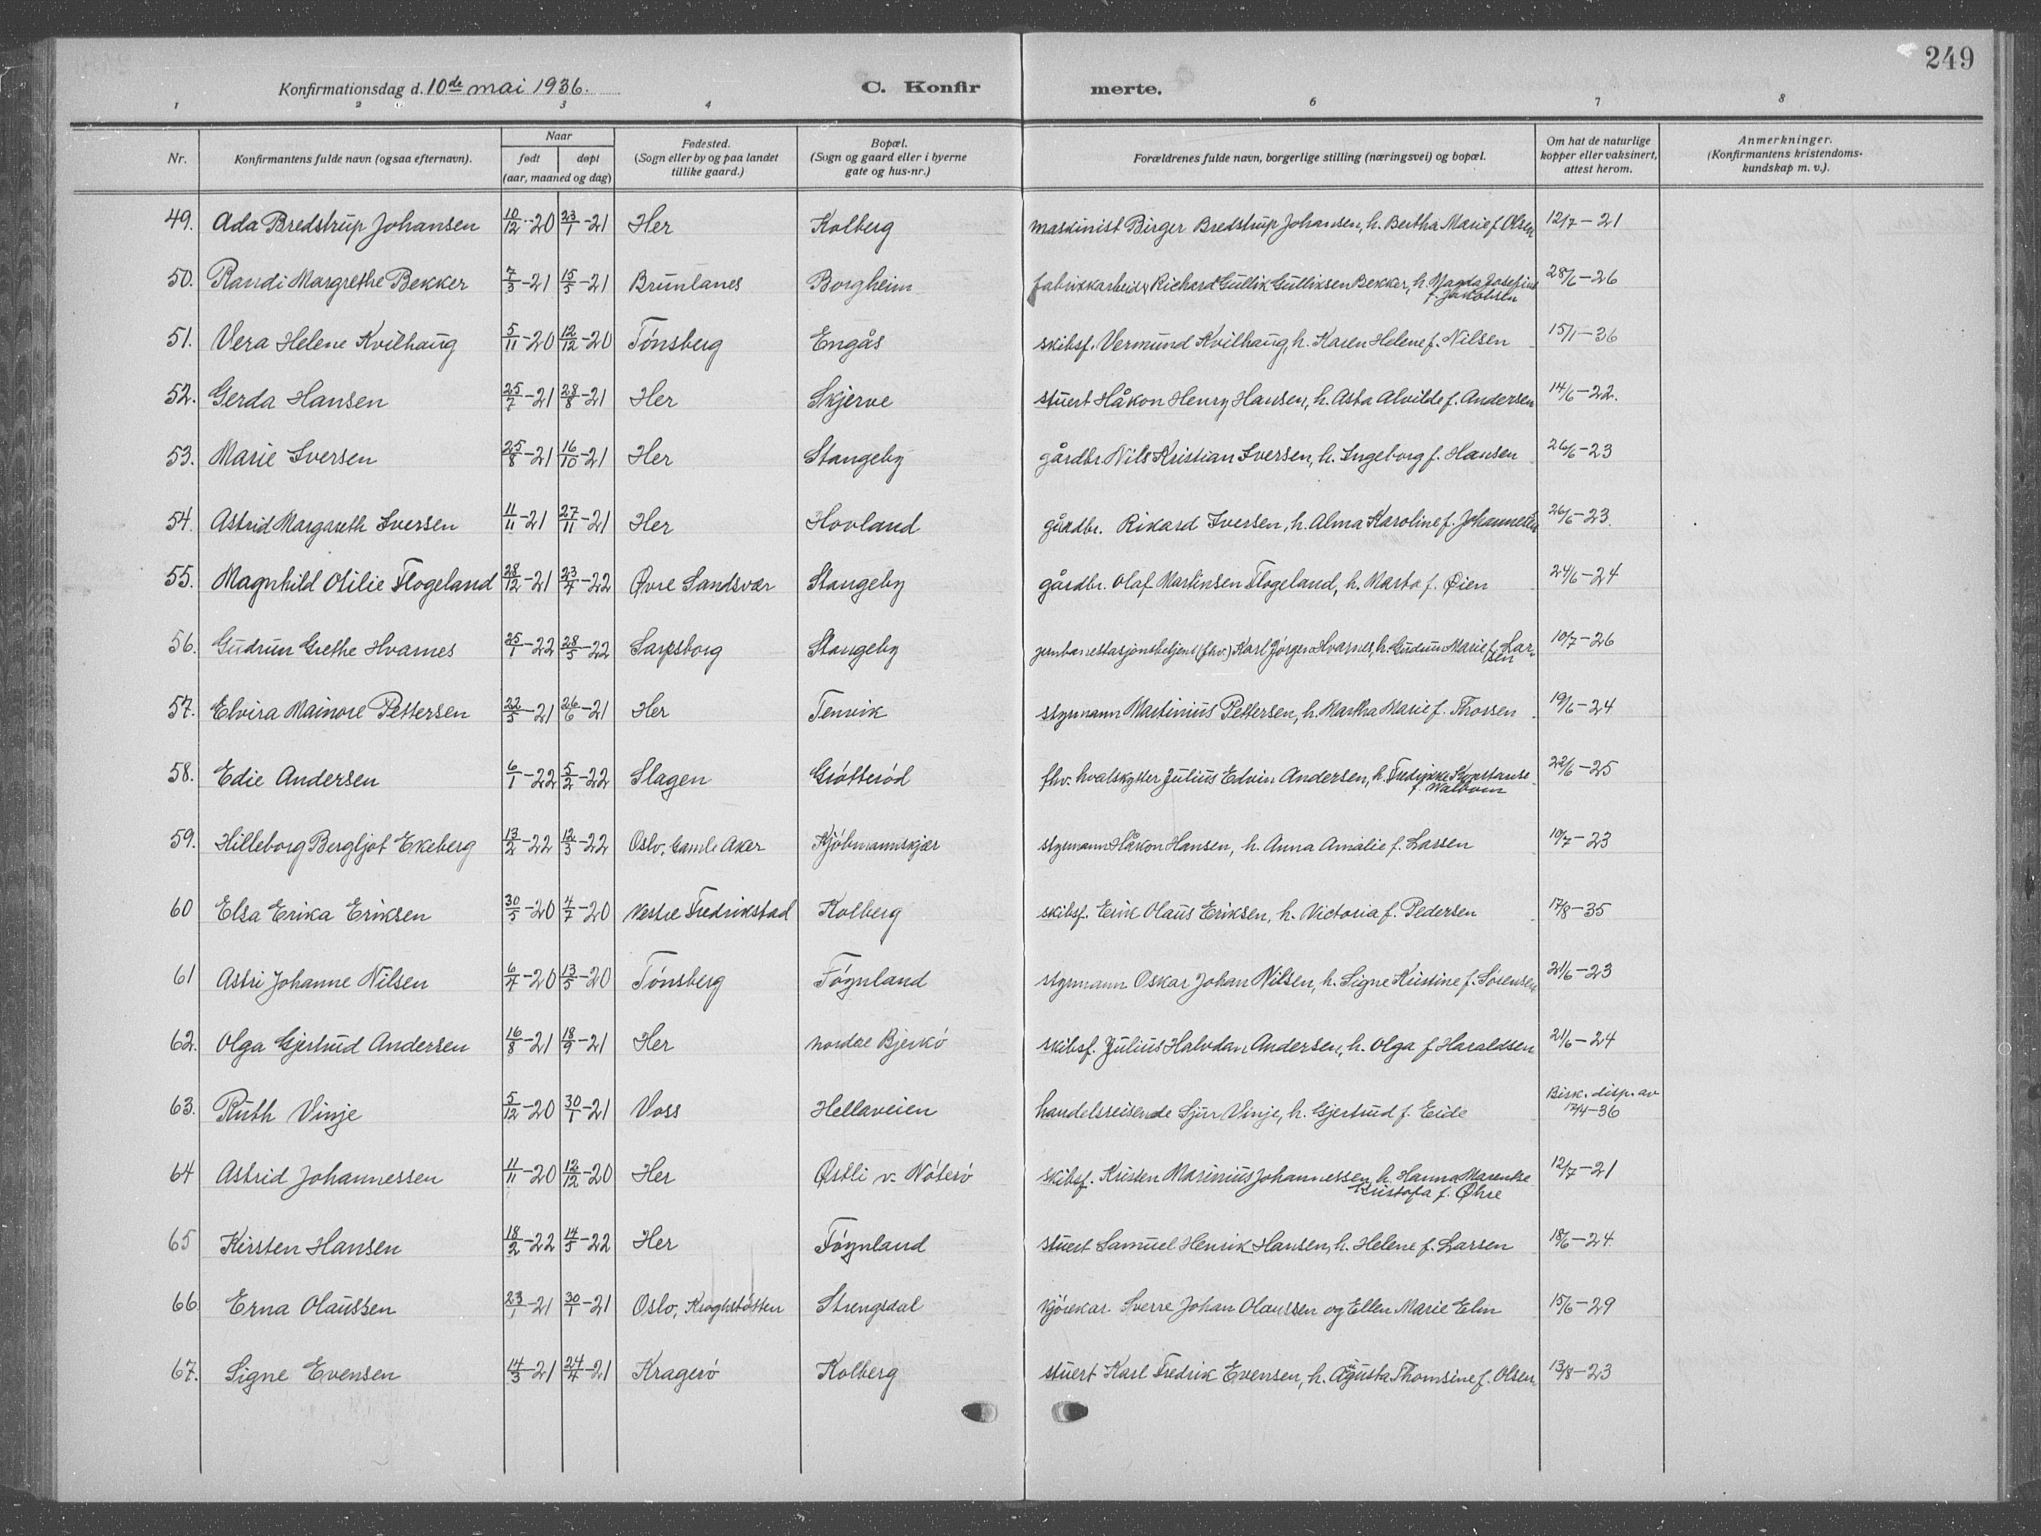 249
Konfirmationsdag d. 10de mai 1936. C. Konfir merte.
1 2 3 4 6 7 8
Nr. Konfirmantens fulde navn (ogsaa efternavn). Naar født døpt (aar, maaned og dag) Fødested. (Sogn eller by og paa landet tillike gaard.) Bopæl. (Sogn og gaard eller i byerne gate og hus-nr.) Forældrenes fulde navn, borgerlige stilling (næringsvei) og bopæl. Om hat de naturlige kopper eller vaksinert, attest herom. Anmerkninger. (Konfirmantens kristendoms-kundskap m. v.).
49. Ada Bredstrup Johansen 10/12-20 23/1-21 Her Kolberg maskinist Birger Bredstrup Johansen, h. Bertha Marie f. Olsen 12/7-21
50. Randi Margrethe Bekker 7/3-21 15/5-21 Brunlanes Borgheim fabrikkarbeider Richard Gullik Gulliksen Bekker, h. Magda Josefine
f. Jakobsen 28/6-26
51. Vera Helene Kvilhaug 5/11-20 12/12-20 Tønsberg Engås skibsf. Vermund Kvilhaug, h. Karen Helene f. Nilsen 15/1-36
52. Gerda Hansen 25/7-21 28/8-21 Her Skjerve stuert Håkon Henry Hansen, h. Asta Alvilde f. Andersen 14/6-22.
53. Marie Iversen 25/8-21 16/10-21 Her Stangeby gårdbr. Nils Kristian Iversen, h. Ingeborg f. Hansen 26/6-23
54. Astrid Margareth Iversen 11/11-21 27/11-21 Her Hovland gårdbr. Rikard Iversen, h. Alma Karoline f. Johannesen 26/6-23.
55. Magnhild Otilie Flogeland 28/12-21 23/4-22 Øvre Sandsvær Stangeby gårdbr. Olaf Martinsen Flogeland, h. Marta f. Øien 24/6-24
56. Gudrun Grethe Hvarnes 25/1-22 28/5-22 Sarpsborg Stangeby jernbanestasjonsbetjent (fhv.) Karl Jørgen Hvarnes, h. Gudrun Marie f. Lar-
sen 10/7-26
57. Elvira Mainore Pettersen 22/5-21 26/6-21 Her Tenvik styrmann Martinius Pettersen, h. Martha Marie f. Thorsen 19/6-24
58. Edie Andersen 6/1-22 5/2-22 Slagen Grøtterød fhv. hvalskytter Julius Edvin Andersen, h. Fredrikke Konstanse
f. Walbom 22/6-25
59. Hilleborg Bergljot Ekeberg 13/2-22 12/3-22 Oslo, Gamle Aker Kjøbmannskjær styrmann Håkon Hansen, h. Anna Amalie f. Larsen 10/7-23
60 Elsa Erika Eriksen 30/5-20 4/7-20 Vestre Fredrikstad Kolberg skibsf. Erik Olaus Eriksen, h. Victoria f. Pedersen 17/8-35
61 Astri Johanne Nilsen 6/4-20 13/5-20 Tønsberg Føynland styrmann Oskar Johan Nilsen, h. Signe Kristine f. Sørensen 21/6-23
62. Olga Gjertrud Andersen 16/8-21 18/9-21 Her nordre Bjerkø skibsf. Julius Halvdan Andersen, h. Olga f. Haraldsen 21/6-24
63. Ruth Vinje 5/12-20 30/1-21 Voss Hellaveien handelsreisende Sjur Vinje, h. Gjertrud f. Eide Bisk. disp. av
17/4-36
64 Astrid Johannessen 11/11-20 12/12-20 Her Østli v. Nøterø skibsf. Kristen Marinius Johannessen, h. Hanna Marenke
Kristofa f. Øhre 12/7-21
65 Kirsten Hansen 18/2-22 14/5-22 Her Føynland stuert Samuel Henrik Hansen, h. Helene f. Larsen 18/6-24
66 Erna Olaussen 23/1-21 30/1-21 Oslo, Kroghstøtten Strengsdal kjørekar Sverre Johan Olaussen og Ellen Marie Elm 15/6-29
67. Signe Evensen 14/3-21 24/4-21 Kragerø Kolberg stuert Karl Fredrik Evensen, h. Augusta Thomsine f. Olsen 13/8-23